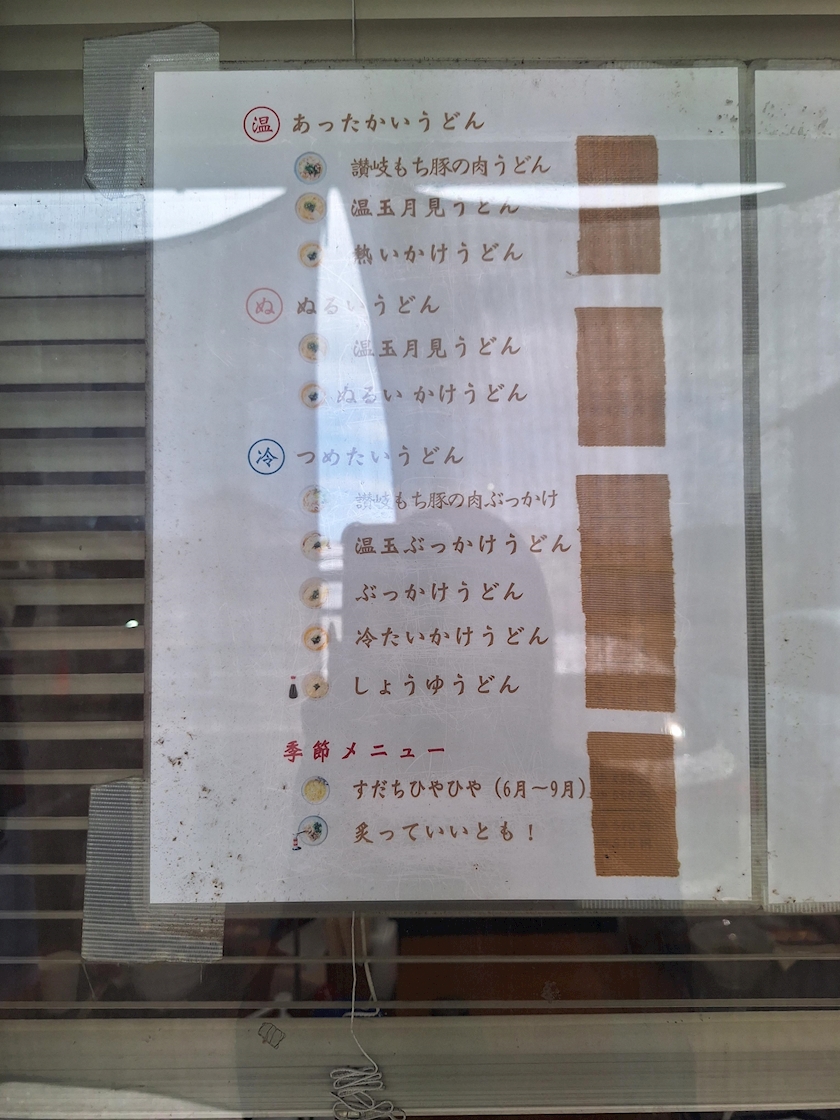 温 あったかいうどん
讃岐もち豚の肉うどん
温玉月見うどん
熱いかけうどん
ぬ ぬるいうどん
温玉月見うどん
ぬるいかけうどん
冷 つめたいうどん
讃岐もち豚の肉ぶっかけ
温玉ぶっかけうどん
ぶっかけうどん
冷たいかけうどん
しょうゆうどん
季節メニュー
すだちひやひや(6月〜9月)
炙っていいとも!